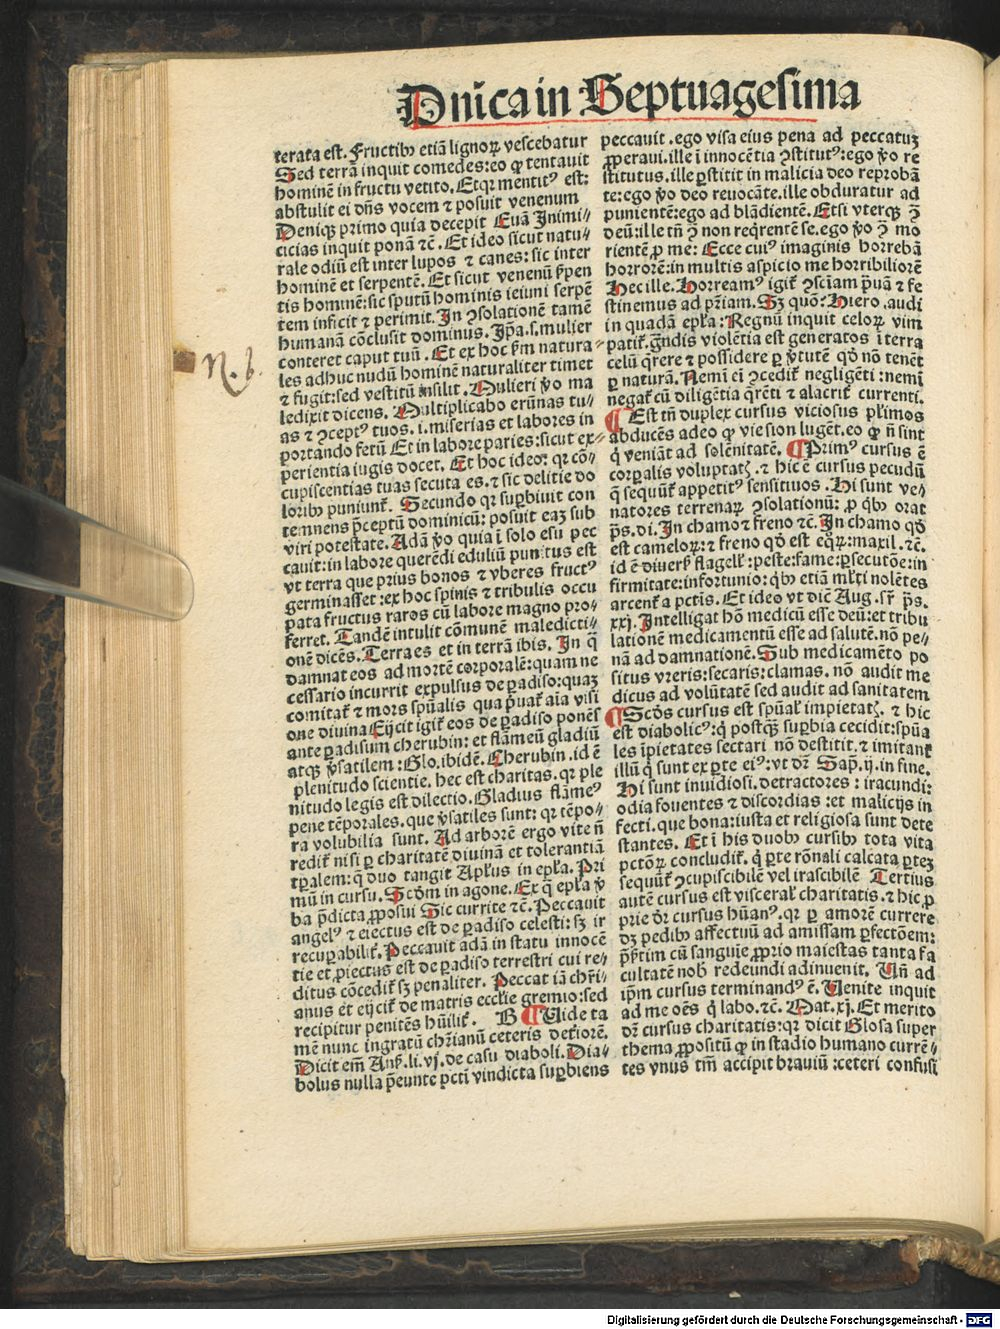 Dnĩca in Septuagesima
terata est. Fructibꝰ etiã lignoꝝ vescebatur
Sed terrã inquit comedes: eo ꝙ tentauit
hominē in fructu vetito. Etqꝛ mentitꝰ est:
abstulit ei dñs vocem ⁊ posuit venenum
Deniqꝫ primo quia decepit Euã Inimi⸗
cicias inquit ponã ⁊c̃. Et ideo sicut natu⸗
rale odiũ est inter lupos ⁊ canes: sic inter
hominē et serpentē. Et sicut venenũ s̃pen
tis hominē: sic sputũ hominis ieiuni serpē
tem inficit ⁊ perimit. In ꝯsolationē tamē
humanã cõclusit dominus. Ip̃a .s. mulier
conteret caput tuũ. Et ex hoc s̃m natura⸗
les adhuc nudũ hominē naturaliter timet
⁊ fugit: sed vestitũ insilit. Mulieri ṽo ma
ledixit dicens. Multiplicabo erũnas tu⸗
as ⁊ ꝯceptꝰ tuos .i. miserias et labores in
portando fetũ Et in labore paries: sicut ex⸗
perientia iugis docet. Et hoc ideo: qꝛ cõ⸗
cupiscentias tuas secuta es. ⁊ sic delitie do
loribꝰ puniunt̃. Secundo qꝛ suꝑbiuit con
temnens p̃ceptũ dominicũ: posuit eaꝫ sub
viri potestate. Adã ṽo quia ĩ solo esu pec
cauit: in labore querēdi eduliũ punitus est
vt terra que prius bonos ⁊ vberes fructꝰ
germinasset: ex hoc spinis ⁊ tribulis occu
pata fructus raros cũ labore magno pro⸗
ferret. Tandē intulit cõmunē maledicti⸗
onē dicēs. Terra es et in terrã ibis. In q̃
damnat eos ad mortē corporalē: quam ne
cessario incurrit expulsus de ꝑadiso: quaꝫ
comitat̃ ⁊ mors spũalis qua p̃uat̃ aĩa visi
one diuina Eijcit igit̃ eos de ꝑadiso ponēs
ante ꝑadisum cherubin: et flameũ gladiũ
atqꝫ ṽsatilem: Glo. ibidē. Cherubin .id ē
plenitudo scientie. hec est charitas. qꝛ ple
nitudo legis est dilectio. Gladius flãmeꝰ
pene tēporales. que ṽsatiles sunt: qꝛ tēpo⸗
ra volubilia sunt. Ad arborē ergo vite ñ
redit̃ nisi ꝑ charitatē diuinã et tolerantiã
tp̃alem: q̃ duo tangit Apl̃us in ep̃la. Pri
mũ in cursu. Scd̃m in agone. Ex q̃ ep̃la ṽ
ba p̃dicta ꝓposui Sic currite ⁊c̃. Peccauit
angelꝰ ⁊ eiectus est de ꝑadiso celesti: sꝫ ir
recuꝑabilit̃. Peccauit adã in statu innocē
tie et ꝓiectus est de ꝑadiso terrestri cui re⸗
ditus cõcedit̃ sꝫ penaliter. Peccat iã chr̃i⸗
anus et eijcit̃ de matris eccl̃ie gremio: sed
recipitur penitēs hũilit̃. B Uide ta
mē nunc ingratũ chr̃ianũ ceteris det̃iorē.
Dicit em̃ Ans̃. li. vj. de casu diaboli. Dia⸗
bolus nulla p̃eunte pct̃i vindicta suꝑbiens
peccauit. ego visa eius pena ad peccatuꝫ
ꝓperaui. ille ĩ innocētia ꝯstitutꝰ: ego ṽo re
stitutus. ille ꝑstitit in malicia deo reprobã
te: ego ṽo deo reuocãte. ille obduratur ad
punientē: ego ad blãdientē. Etsi vterqꝫ ꝯ̃
deũ: ille tñ ꝯ̃ non req̃rentē se. ego ṽo ꝯ̃ mo
rientē ꝓ me: Ecce cuiꝰ imaginis horrebã
horrorē: in multis aspicio me horribiliorē
Hec ille. Horreamꝰ igit̃ ꝯsciam p̃uã ⁊ fe
stinemus ad pr̃iam. Sꝫ quõ: Hiero. audi
in quadã ep̃la: Regnũ inquit celoꝝ vim
patit̃. grãndis violētia est generatos ĩ terra
celũ q̃rere ⁊ possidere ꝑ ṽtutē qd̃ nõ tenēt
ꝑ naturã. Nemĩ eĩ ꝯcedit̃ negligēti: nemĩ
negat̃ cũ diligētia q̃rēti ⁊ alacrit̃ currenti.
Est tñ duplex cursus viciosus pl̃imos
abducēs adeo ꝙ vie sion lugēt. eo ꝙ ñ sint
q̃ veniãt ad solēnitatē. Primꝰ cursus ē
corꝑalis voluptatꝭ. ⁊ hic ē cursus pecudũ
q̃ sequũt̃ appetitꝰ sensitiuos. Hi sunt ve⸗
natores terrenaꝝ ꝯsolationũ: ꝓ qb̃ꝰ orat
ps̃. di. In chamo ⁊ freno ⁊c̃. In chamo qd̃
est cameloꝝ: ⁊ freno qd̃ est eq̃ꝝ: maxil. ⁊c̃.
id ē diuers̃ flagell̃: peste: fame: ꝑsecutõe: in
firmitate: infortunio: qb̃ꝰ etiã ml̃ti nolētes
arcent̃ a pct̃is. Et ideo vt dic̃ Aug. sr̃ ps̃.
xxj. Intelligat hõ medicũ esse deũ: et tribu
lationē medicamentũ esse ad salutē. nõ pe⸗
nã ad damnationē. Sub medicamēto po
situs vreris: secaris: clamas. nõ audit me
dicus ad volũtatē sed audit ad sanitatem
Scd̃s cursus est spũal̃ impietatꝭ. ⁊ hic
est diabolicꝰ: q̃ postq̃ꝫ suꝑbia cecidit: spũa
les ĩpietates sectari nõ destitit. ⁊ imitant̃
illũ q̃ sunt ex ꝑte eiꝰ: vt dr̃ Sap̃. ij. in fine.
Hi sunt inuidiosi. detractores: iracundi:
odia fouentes ⁊ discordias: et malicijs in
fecti. que bona: iusta et religiosa sunt dete
stantes. Et ĩ his duobꝰ cursibꝰ tota vita
pctõꝝ concludit̃. q̃ ꝑte rõnali calcata ꝑteꝫ
sequũt̃ ꝯcupiscibilē vel irascibilē Tertius
autē cursus est visceral̃ charitatis. ⁊ hic ꝓ
prie dr̃ cursus hũanꝰ. qꝛ ꝑ amorē currere
dꝫ pedibꝰ affectuũ ad amissam ꝑfectõem:
p̃s̃tim cũ sanguĩe ꝓprio maiestas tanta fa
cultatē nob̃ redeundi adinuenit. Uñ ad
ip̃m cursus terminandꝰ ē. Uenite inquit
ad me oēs q̃ labo. ⁊c̃. Mat. xj. Et merito
dr̃ cursus charitatis: qꝛ dicit Glosa super
thema ꝓpositũ ꝙ in stadio humano currē⸗
tes vnus tm̃ accipit brauiũ: ceteri confusi
N. b.
Digitalisierung gefördert durch die Deutsche Forschungsgemeinschaft - DFG